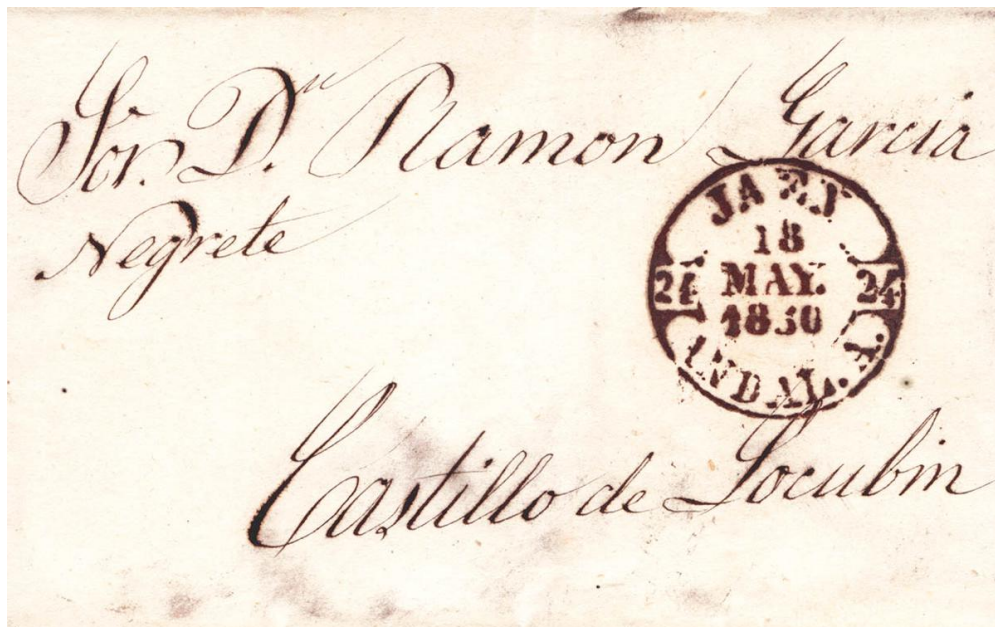 Sor. Dn. Ramon Garcia
Negrete
JAEN
18
MAY.
1850
24 24
ANDAL. A.
Castillo de Locubin